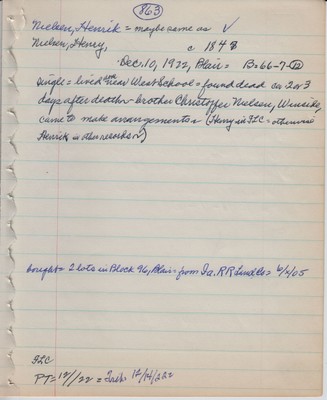 863
Nielsen, Henrik = maybe same as ✓
Nielsen, Henry, c 1848
Dec. 10, 1922, Blair = B=66-7-12
single = lived near West School = found dead on 2 or 3
days after death = brother Christoffer Nielsen,
came to make arrangements (Henry in FLC = otherwise
Henrik in other records ✓)
bought = 2 lots in Block 96, Blair = from Ia. RR Land Co = 6/ /05
FLC
PT = 12/ /22 = 12/14/222